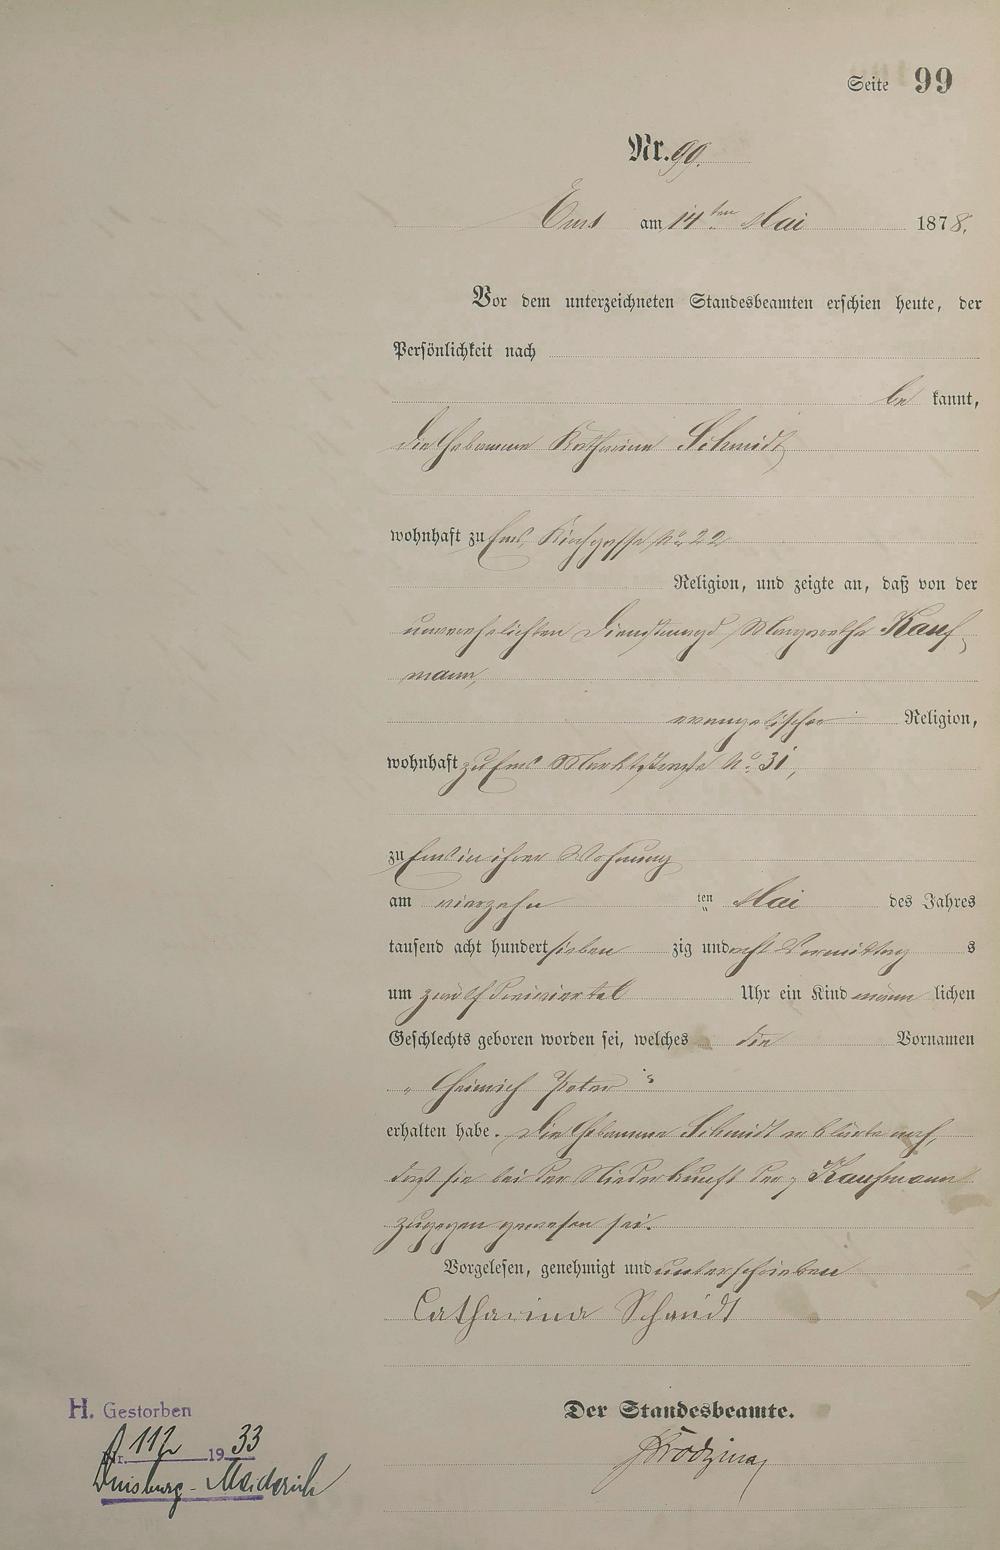 Seite 99
Nr. 99.
Ems am 14ten Mai 1878.
Vor dem unterzeichneten Standesbeamten erschien heute, der
Persönlichkeit nach
be kannt,
die Hebamme Katharina Schmidt
wohnhaft zu Ems, Kirchgasse No 22
Religion, und zeigte an, daß von der
unverehelichten Dienstmagd Margarethe Kauf-
mann,
evangelischer Religion,
wohnhaft zu Ems Marktstraße No. 31,
zu Ems in ihrer Wohnung
am vierzehn ten Mai des Jahres
tausend acht hundert sieben zig und acht Vormittag s
um zwölf dreiviertel Uhr ein Kind männ lichen
Geschlechts geboren worden sei, welches die Vornamen
"Heinrich Peter"
erhalten habe. Die Hebamme Schmidt erklärte noch,
daß sie bei der Niederkunft der Kaufmann
zugegen gewesen sei.
Vorgelesen, genehmigt und unterschrieben
Catharina Schmidt
Der Standesbeamte.
H. Gestorben
Nr. 112 1933
Duisburg-Meiderich